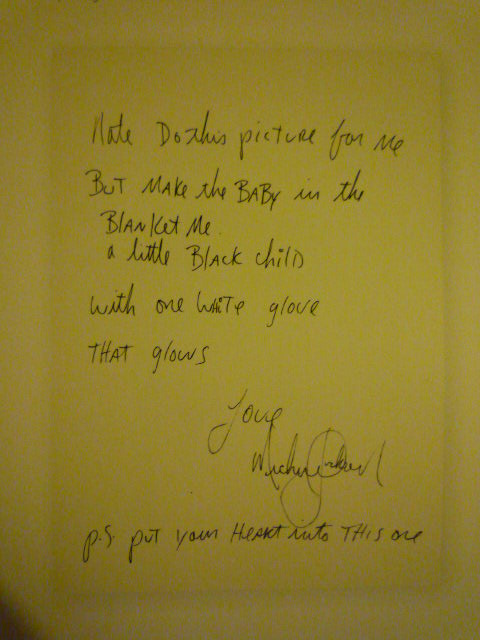 Nate Do this picture for me
BUT MAKE the BABY in the
BLANKet Me.
a little BLACK child
with one WHiTe glove
THAT glows
Love
Michael Jackson
p.s. put your HEART into THIS one